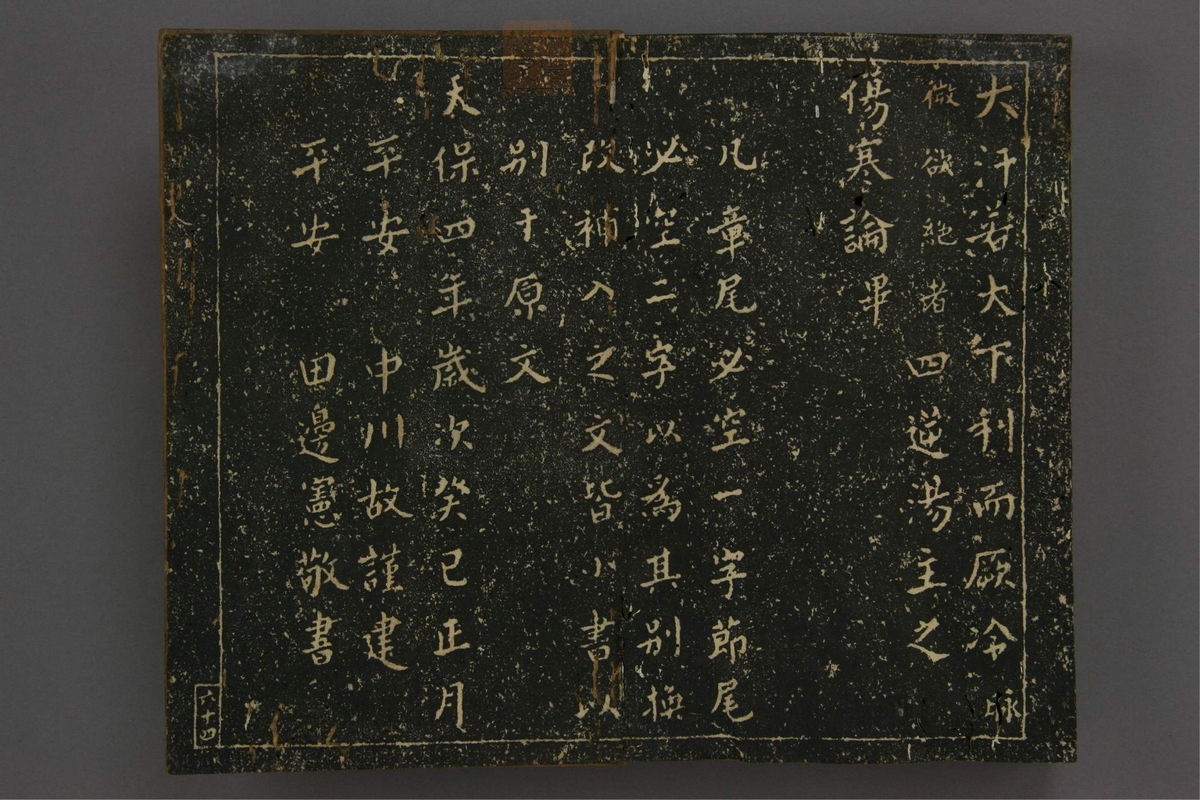 大汗若大下利而厥冷脉
微欲絶者四逆湯主之
傷寒論畢
凡章尾必空一字節尾
必空二字以為其別換
改補入之文皆小書以
別于原文
天保四年歲次癸巳正月
平安 中川故謹建
平安 田邊憲敬書
六十四